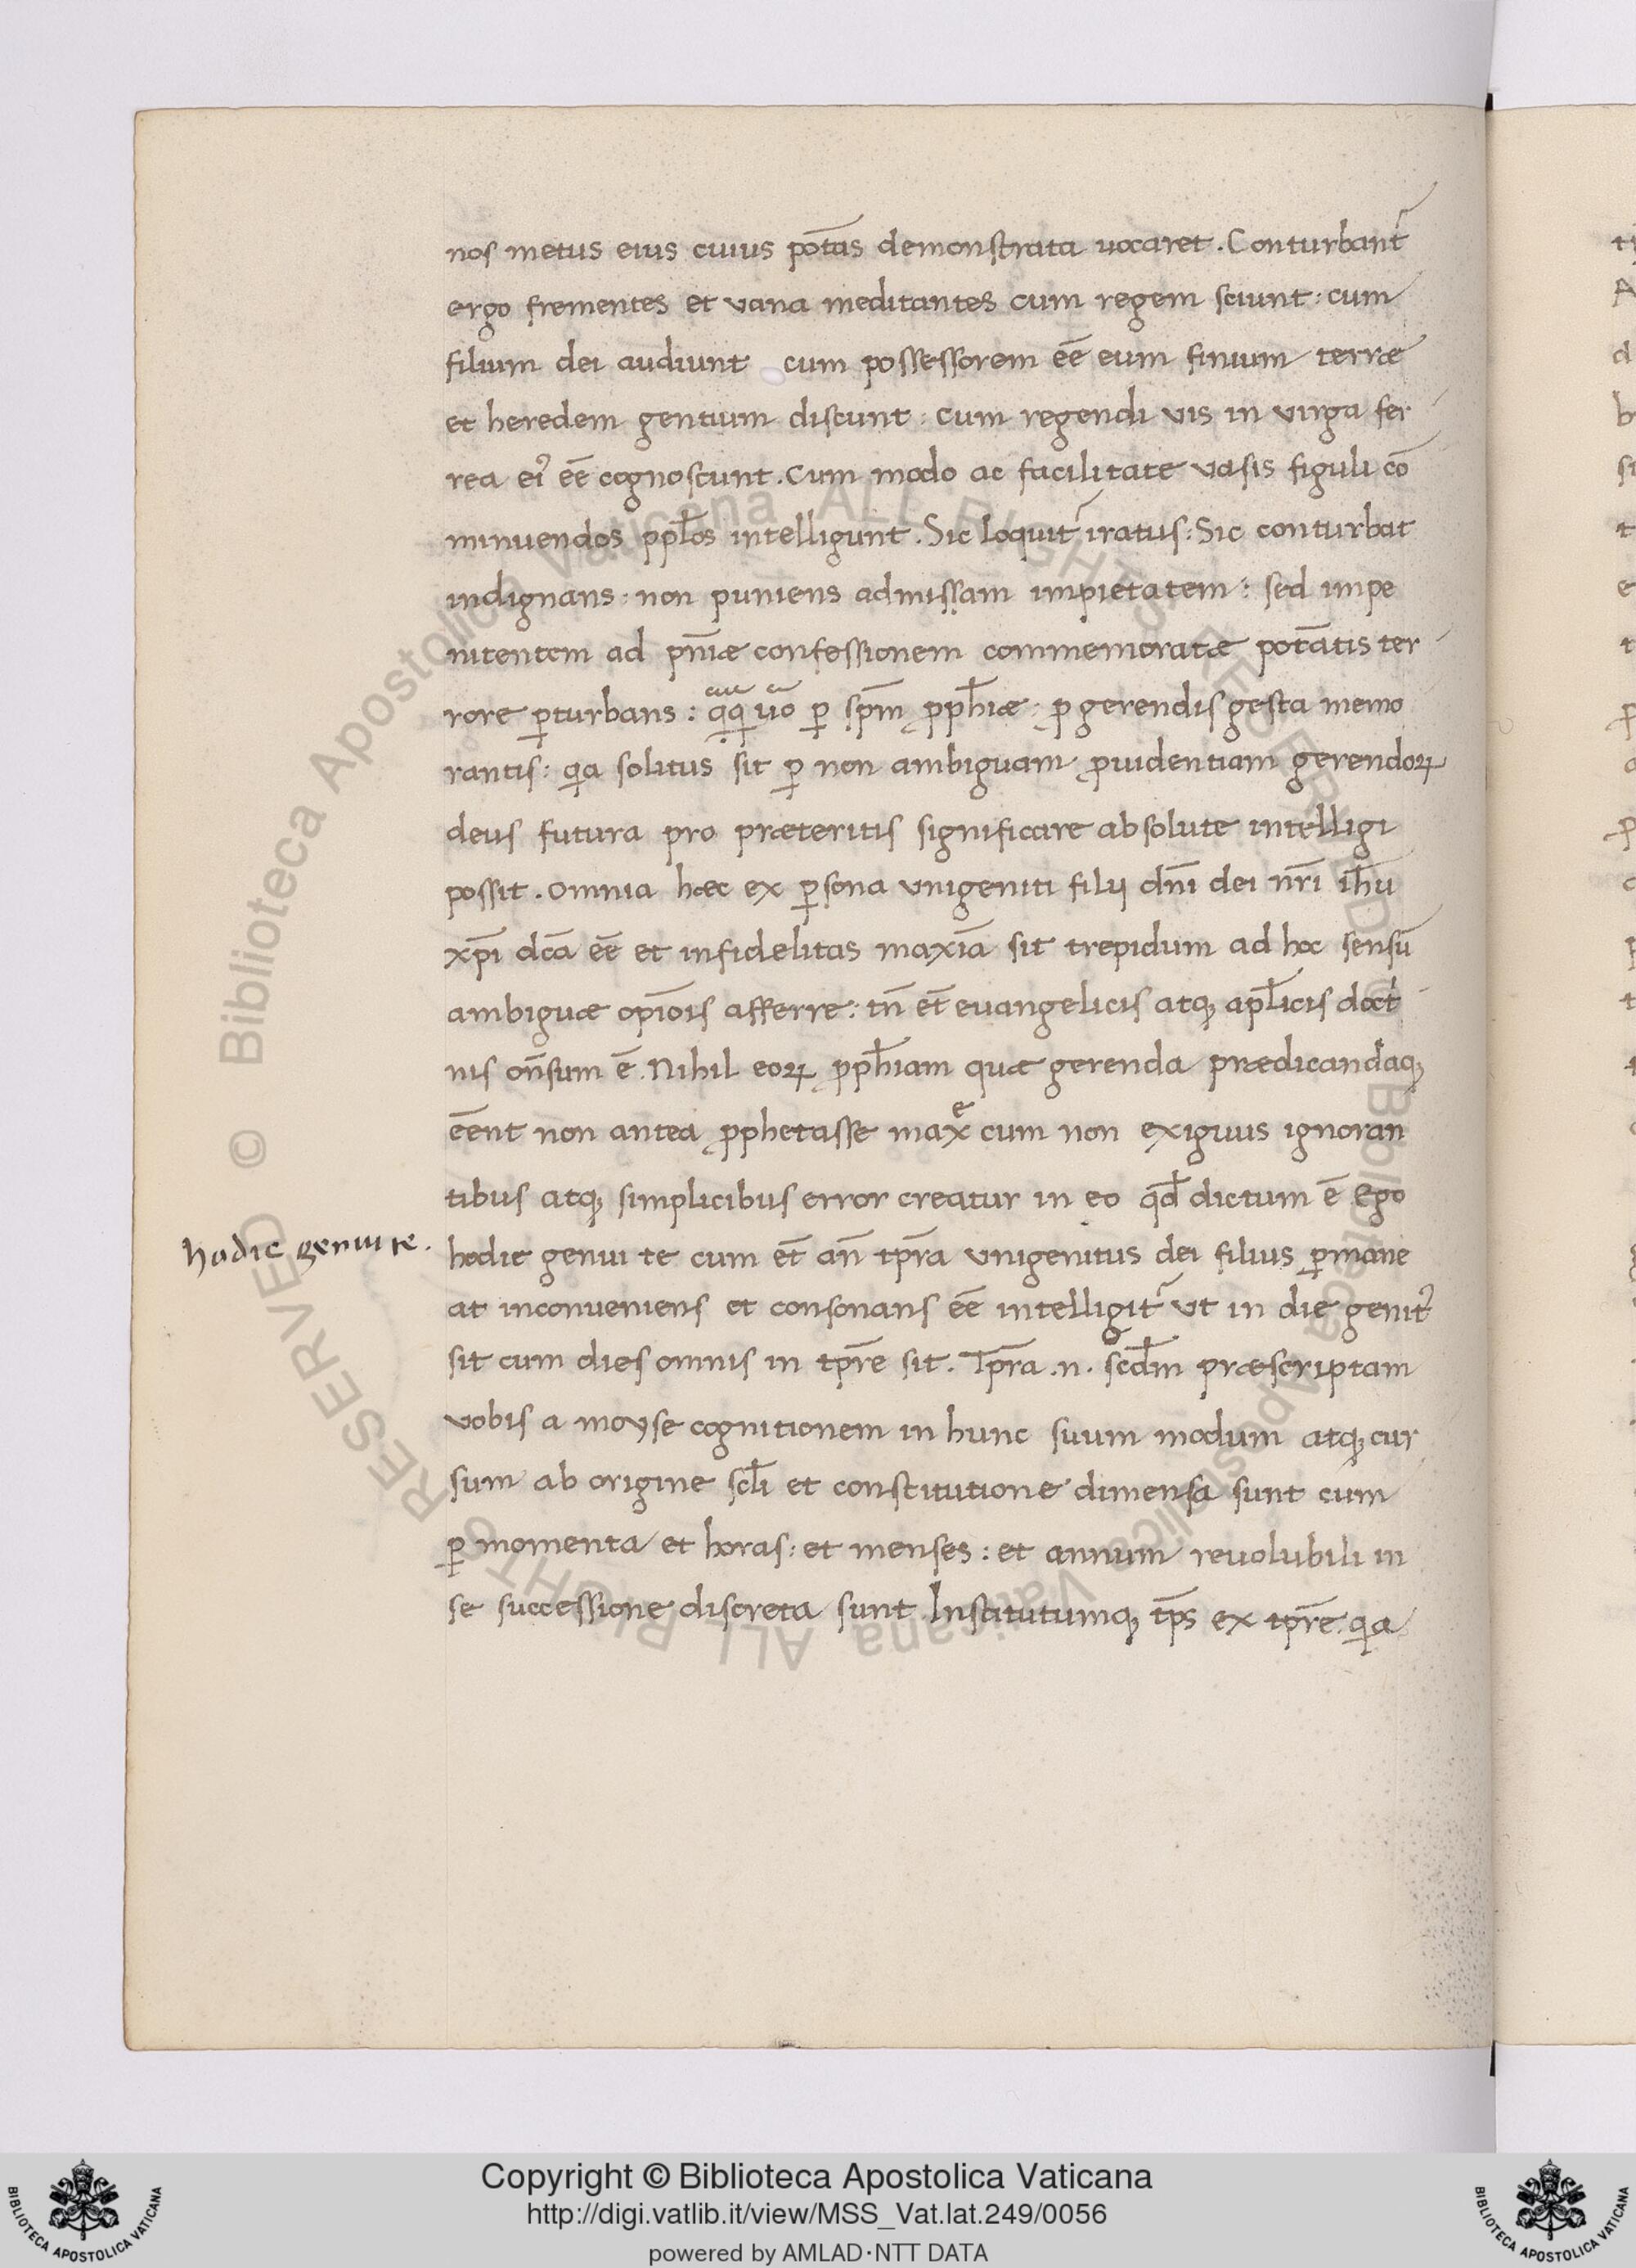 nos metus eius cuius potās demonstrata uocaret. Conturbant᷑
ergo frementes et vana meditantes cum regem sciunt: cum
filium dei audiunt cum possessorem eē eum finium terræ
et heredem gentium discunt: cum regendi vis in virga fer
rea ei᷒ eē cognoscunt. Cum modo ac facilitate vasis figuli cō
minuendos ppl̄os intelligunt. Sic loquit᷑ iratus: Sic conturbat
indignans: non puniens admissam impietatem: sed impe
nitentem ad pn̄iæ confessionem commemoratæ potātis ter
rore ꝑturbans: ꝑ sp̄m ꝓph̄iæ: ꝓ gerendis gesta memo
rantis: qa solitus sit ꝑ non ambiguam ꝓuidentiam gerendoꝝ
deus futura pro præteritis significare absolute intelligi
possit. Omnia hæc ex ꝑsona vnigeniti filij dn̄i dei nr̄i ih̄u
xp̄i dc̄a eē et infidelitas maxīa sit trepidum ad hoc sensū
ambiguæ opīois afferre: tn̄ et̄ euangelicis atqꝫ apl̄icis doct᷑
nis on̄sum ē. Nihil eoꝝ ꝓph̄iam quæ gerenda prædicandaqꝫ
eēnt non antea ꝓphetasse maxe cum non exiguus ignoran
tibus atqꝫ simplicibus error creatur in eo qd̄ dictum ē Ego
hodie genui te cum et̄ an̄ tpr̄a vnigenitus dei filius ꝑmane
at inconueniens et consonans eē intelligit᷑ vt in die genit᷒
sit cum dies omnis in tpr̄e sit. Tpr̄a .n. scd̄m præscriptam
vobis a moyse cognitionem in hunc suum modum atqꝫ cur
sum ab origine scl̄i et constitutione dimensa sunt cum
ꝑ momenta et horas: et menses: et annum reuolubili in
se successione discreta sunt Institutumqꝫ tp̄s ex tpr̄e. qa
hodie genui te.
© Biblioteca Apostolica Vaticana ALL RIGHTS RESERVED © Biblioteca Apostolica Vaticana ALL RIGHTS RESERVED
Copyright © Biblioteca Apostolica Vaticana
http://digi.vatlib.it/view/MSS_Vat.lat.249/0056
powered by AMLAD·NTT DATA
BIBLIOTECA APOSTOLICA VATICANA
BIBLIOTECA APOSTOLICA VATICANA